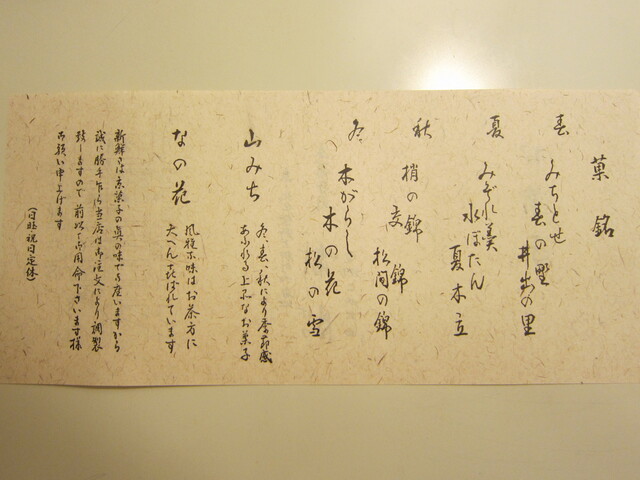 菓銘
春 みちとせ
春の野
井出の里
夏 みぞれ羹
水ぼたん
夏木立
秋 梢の錦
交錦
松間の錦
冬 木がらし
木の花
松の雪
山みち
冬、春、秋により季節感
あふれる上品なお菓子
なの花
風雅な味はお茶方に
大へん喜ばれています
新鮮さは京菓子の真の味でございますから
誠に勝手乍ら当店は御注文により調製
致しますので前以て御用命下さいます様
お願い申し上げます
(日曜、祝日定休)